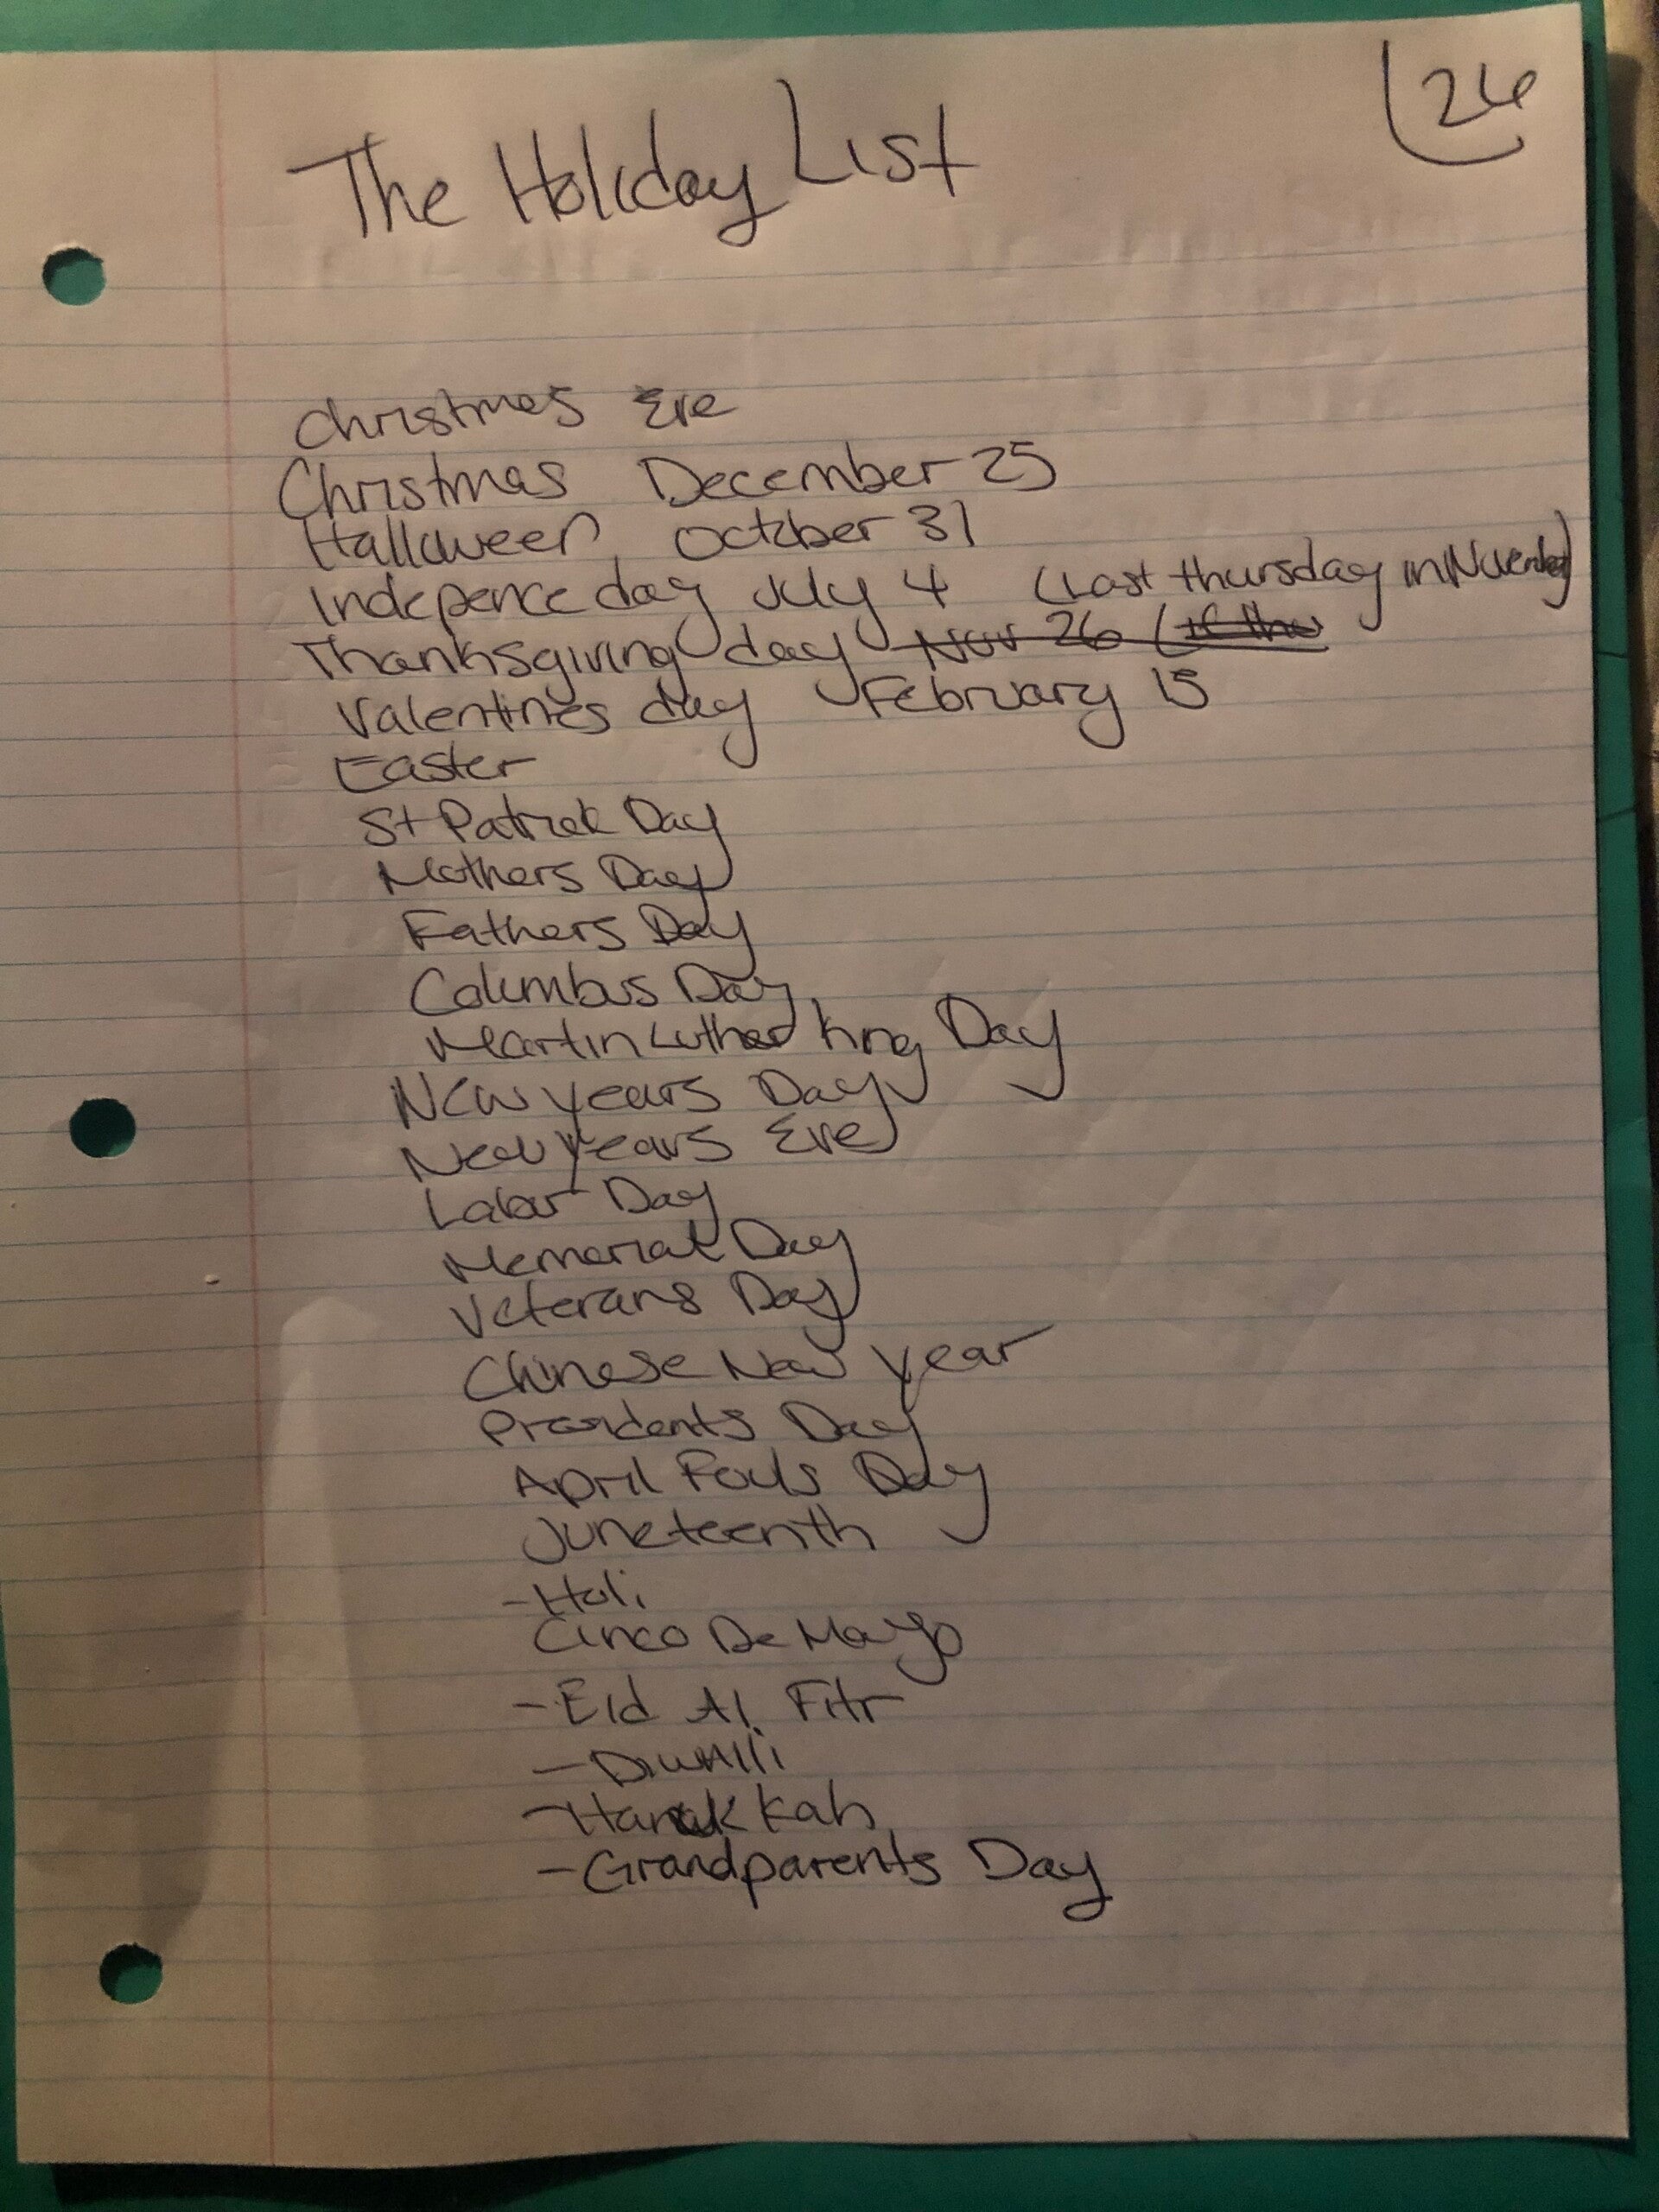 26
The Holiday List
Christmas Eve
Christmas December 25
Halloween October 31
Indepence day July 4 (Last thursday in November)
Thanksgiving day Nov 26 (if the
Valentines day February 15
Easter
St Patrick Day
Mothers Day
Fathers Day
Columbus Day
Martin Luther King Day
New years Day
New years Eve
Labor Day
Memorial Day
Veterans Day
Chinese New year
Presidents Day
April Fools Day
Juneteenth
-Holi
Cinco De Mayo
-Eid Al. Fitr
-Diwalli
-Hanukkah
-Grandparents Day